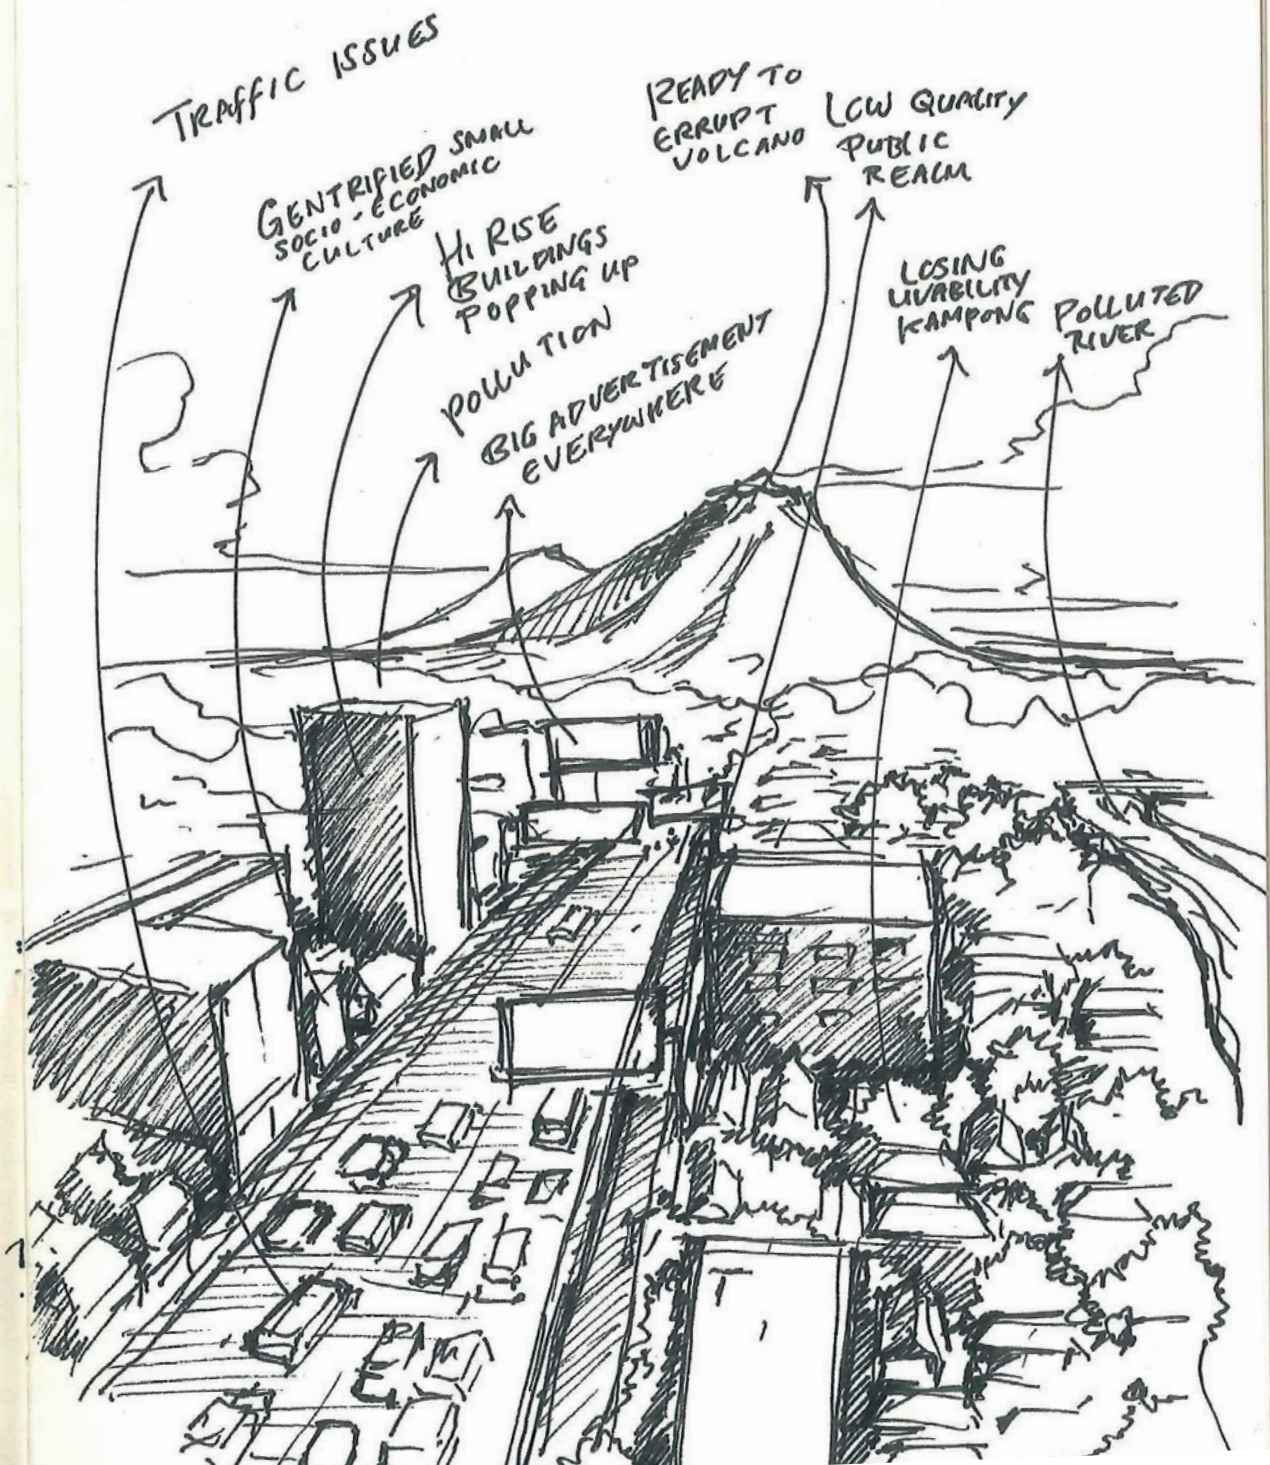 TRAFFIC ISSUES
GENTRIFIED SMALL
SOCIO-ECONOMIC
CULTURE
HI RISE
BUILDINGS
POPPING UP
POLLUTION
BIG ADVERTISEMENT
EVERYWHERE
READY TO
ERRUPT
VOLCANO
LOW QUALITY
PUBLIC
REALM
LOSING
LIVABILITY
KAMPONG
POLLUTED
RIVER